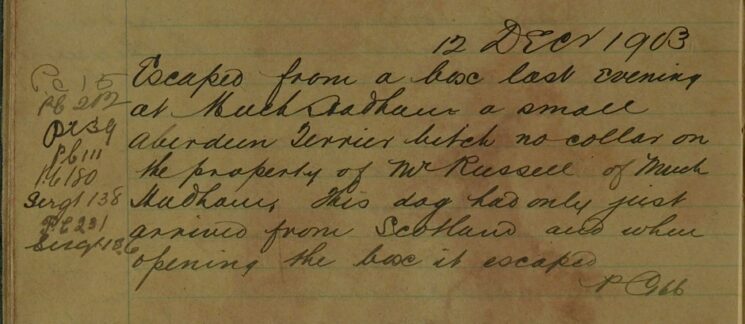 12 Decr 1903
P.C. 15
PC 202
PC 111
PC 180
Sergt 138
PC 231
Sergt 136
Escaped from a box last evening
at Much Hadham a small
aberdeen Terrier bitch no collar on
the property of Mr Russell of Much
Hadham, This dog had only just
arrived from Scotland and when
opening the box it escaped